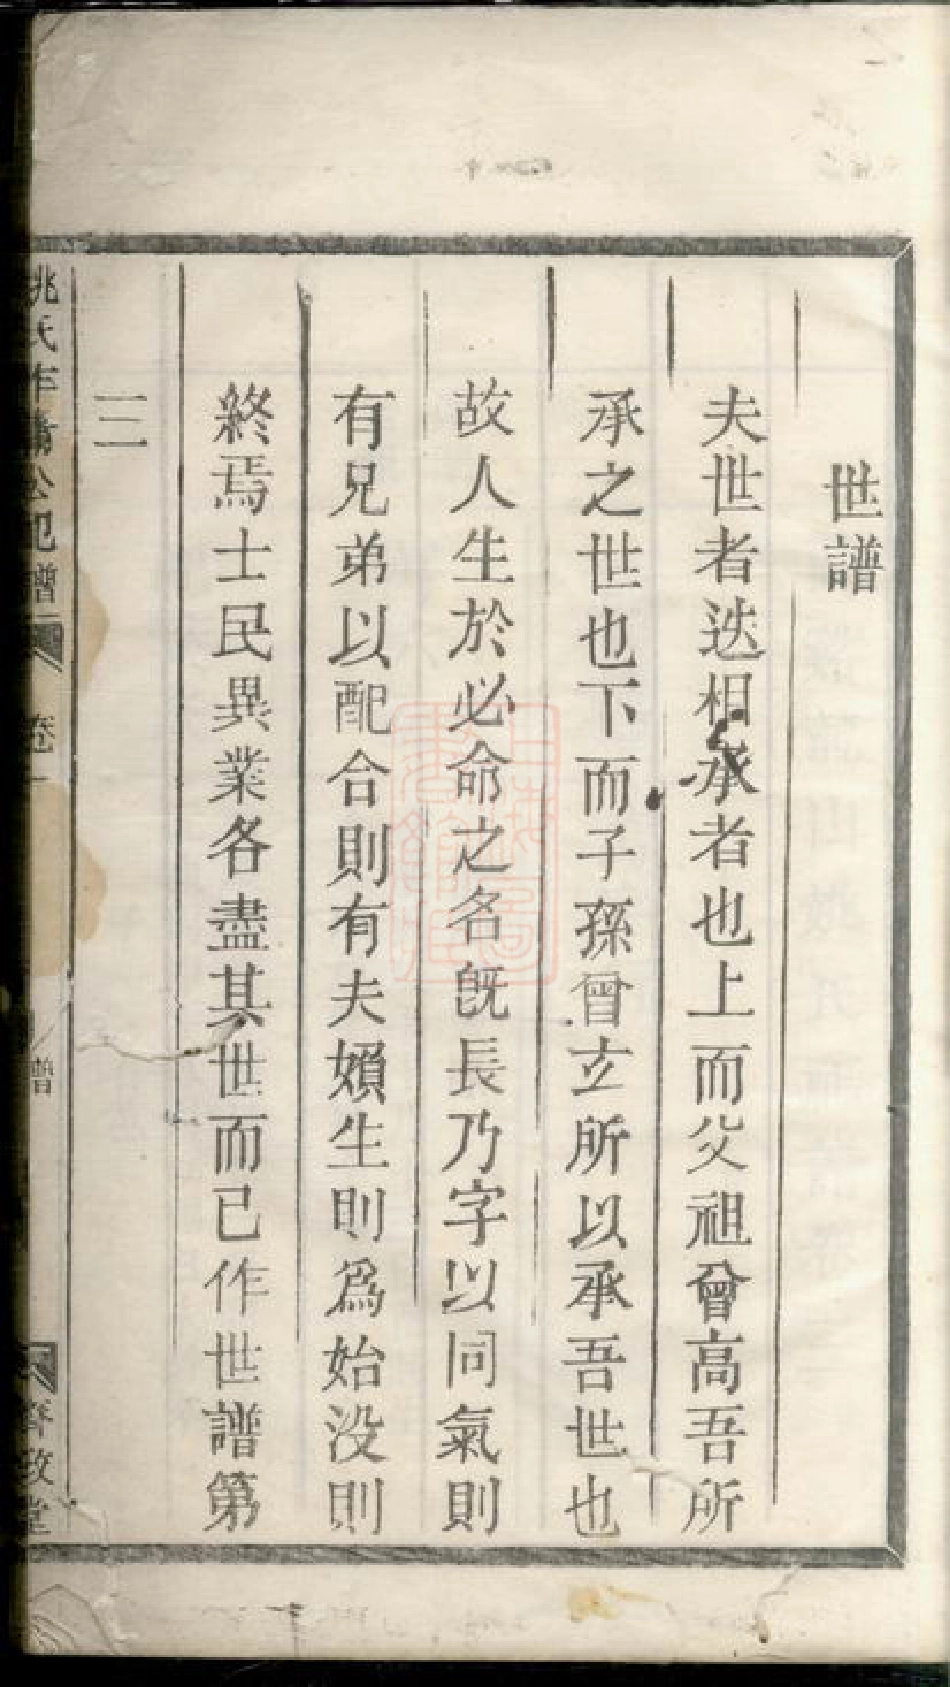 世譜
夫世者迭相承者也上而父祖曾高吾所
承之世也下而子孫曾玄所以承吾世也
故人生於必命之名旣長乃字以同氣則
有兄弟以配合則有夫嬪生則爲始没則
終焉士民異業各盡其世而已作世譜第
三
姚氏 公祀譜 卷一 譜 政堂